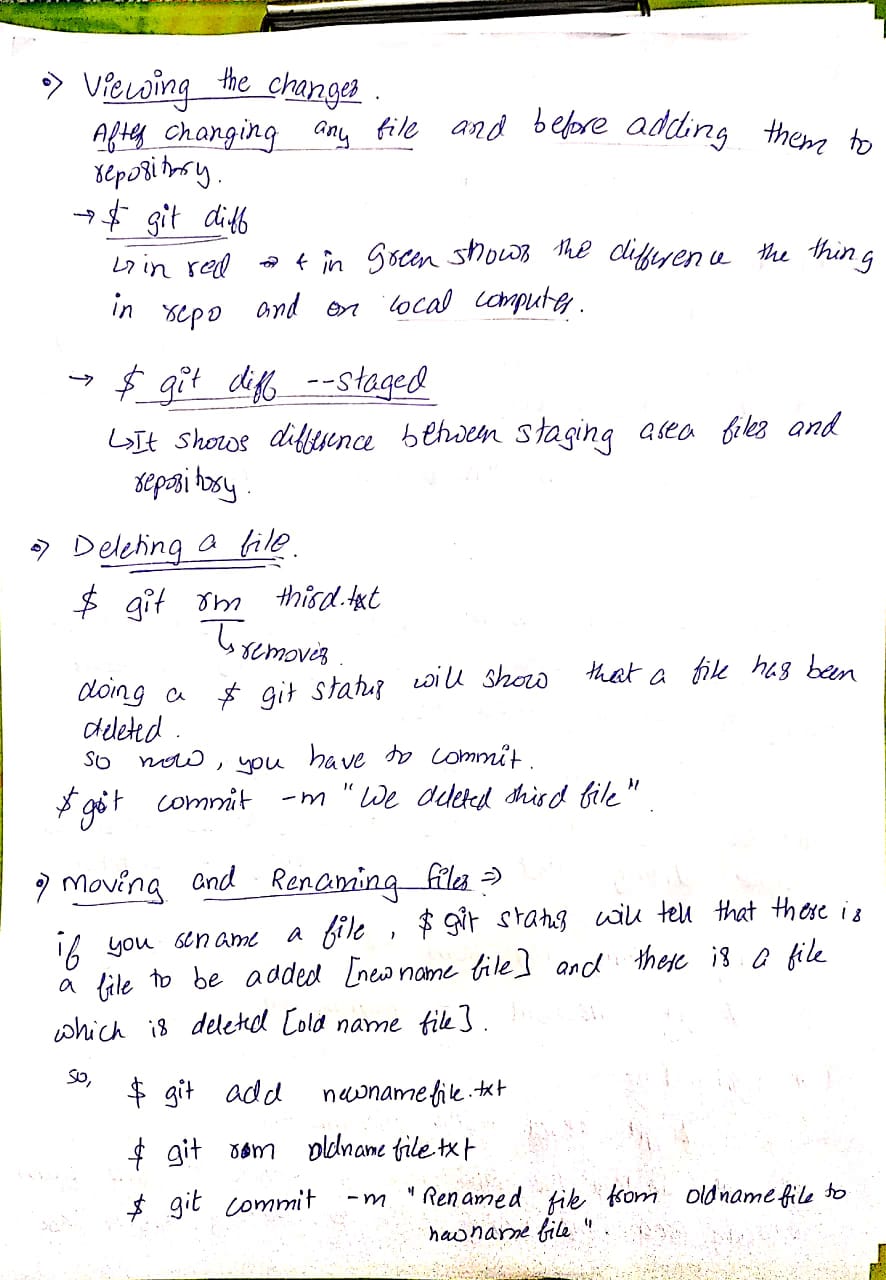 ⇒ Viewing the changes.
After changing any file and before adding them to
repository.
→ $ git diff
↳ in red & in green shows the difference the thing
in repo and on local computer.
→ $ git diff --staged
↳ It shows difference between staging area files and
repository.
⇒ Deleting a file.
$ git rm third.txt
↳ removes.
doing a $ git status will show that a file has been
deleted.
so now, you have to commit.
$ git commit -m "We deleted third file"
⇒ Moving and Renaming files ⇒
if you rename a file, $ git status will tell that there is
a file to be added [new name file] and there is a file
which is deleted [old name file].
so,
$ git add newnamefile.txt
$ git rm oldnamefile.txt
$ git commit -m "Renamed file from oldnamefile to
newname file".